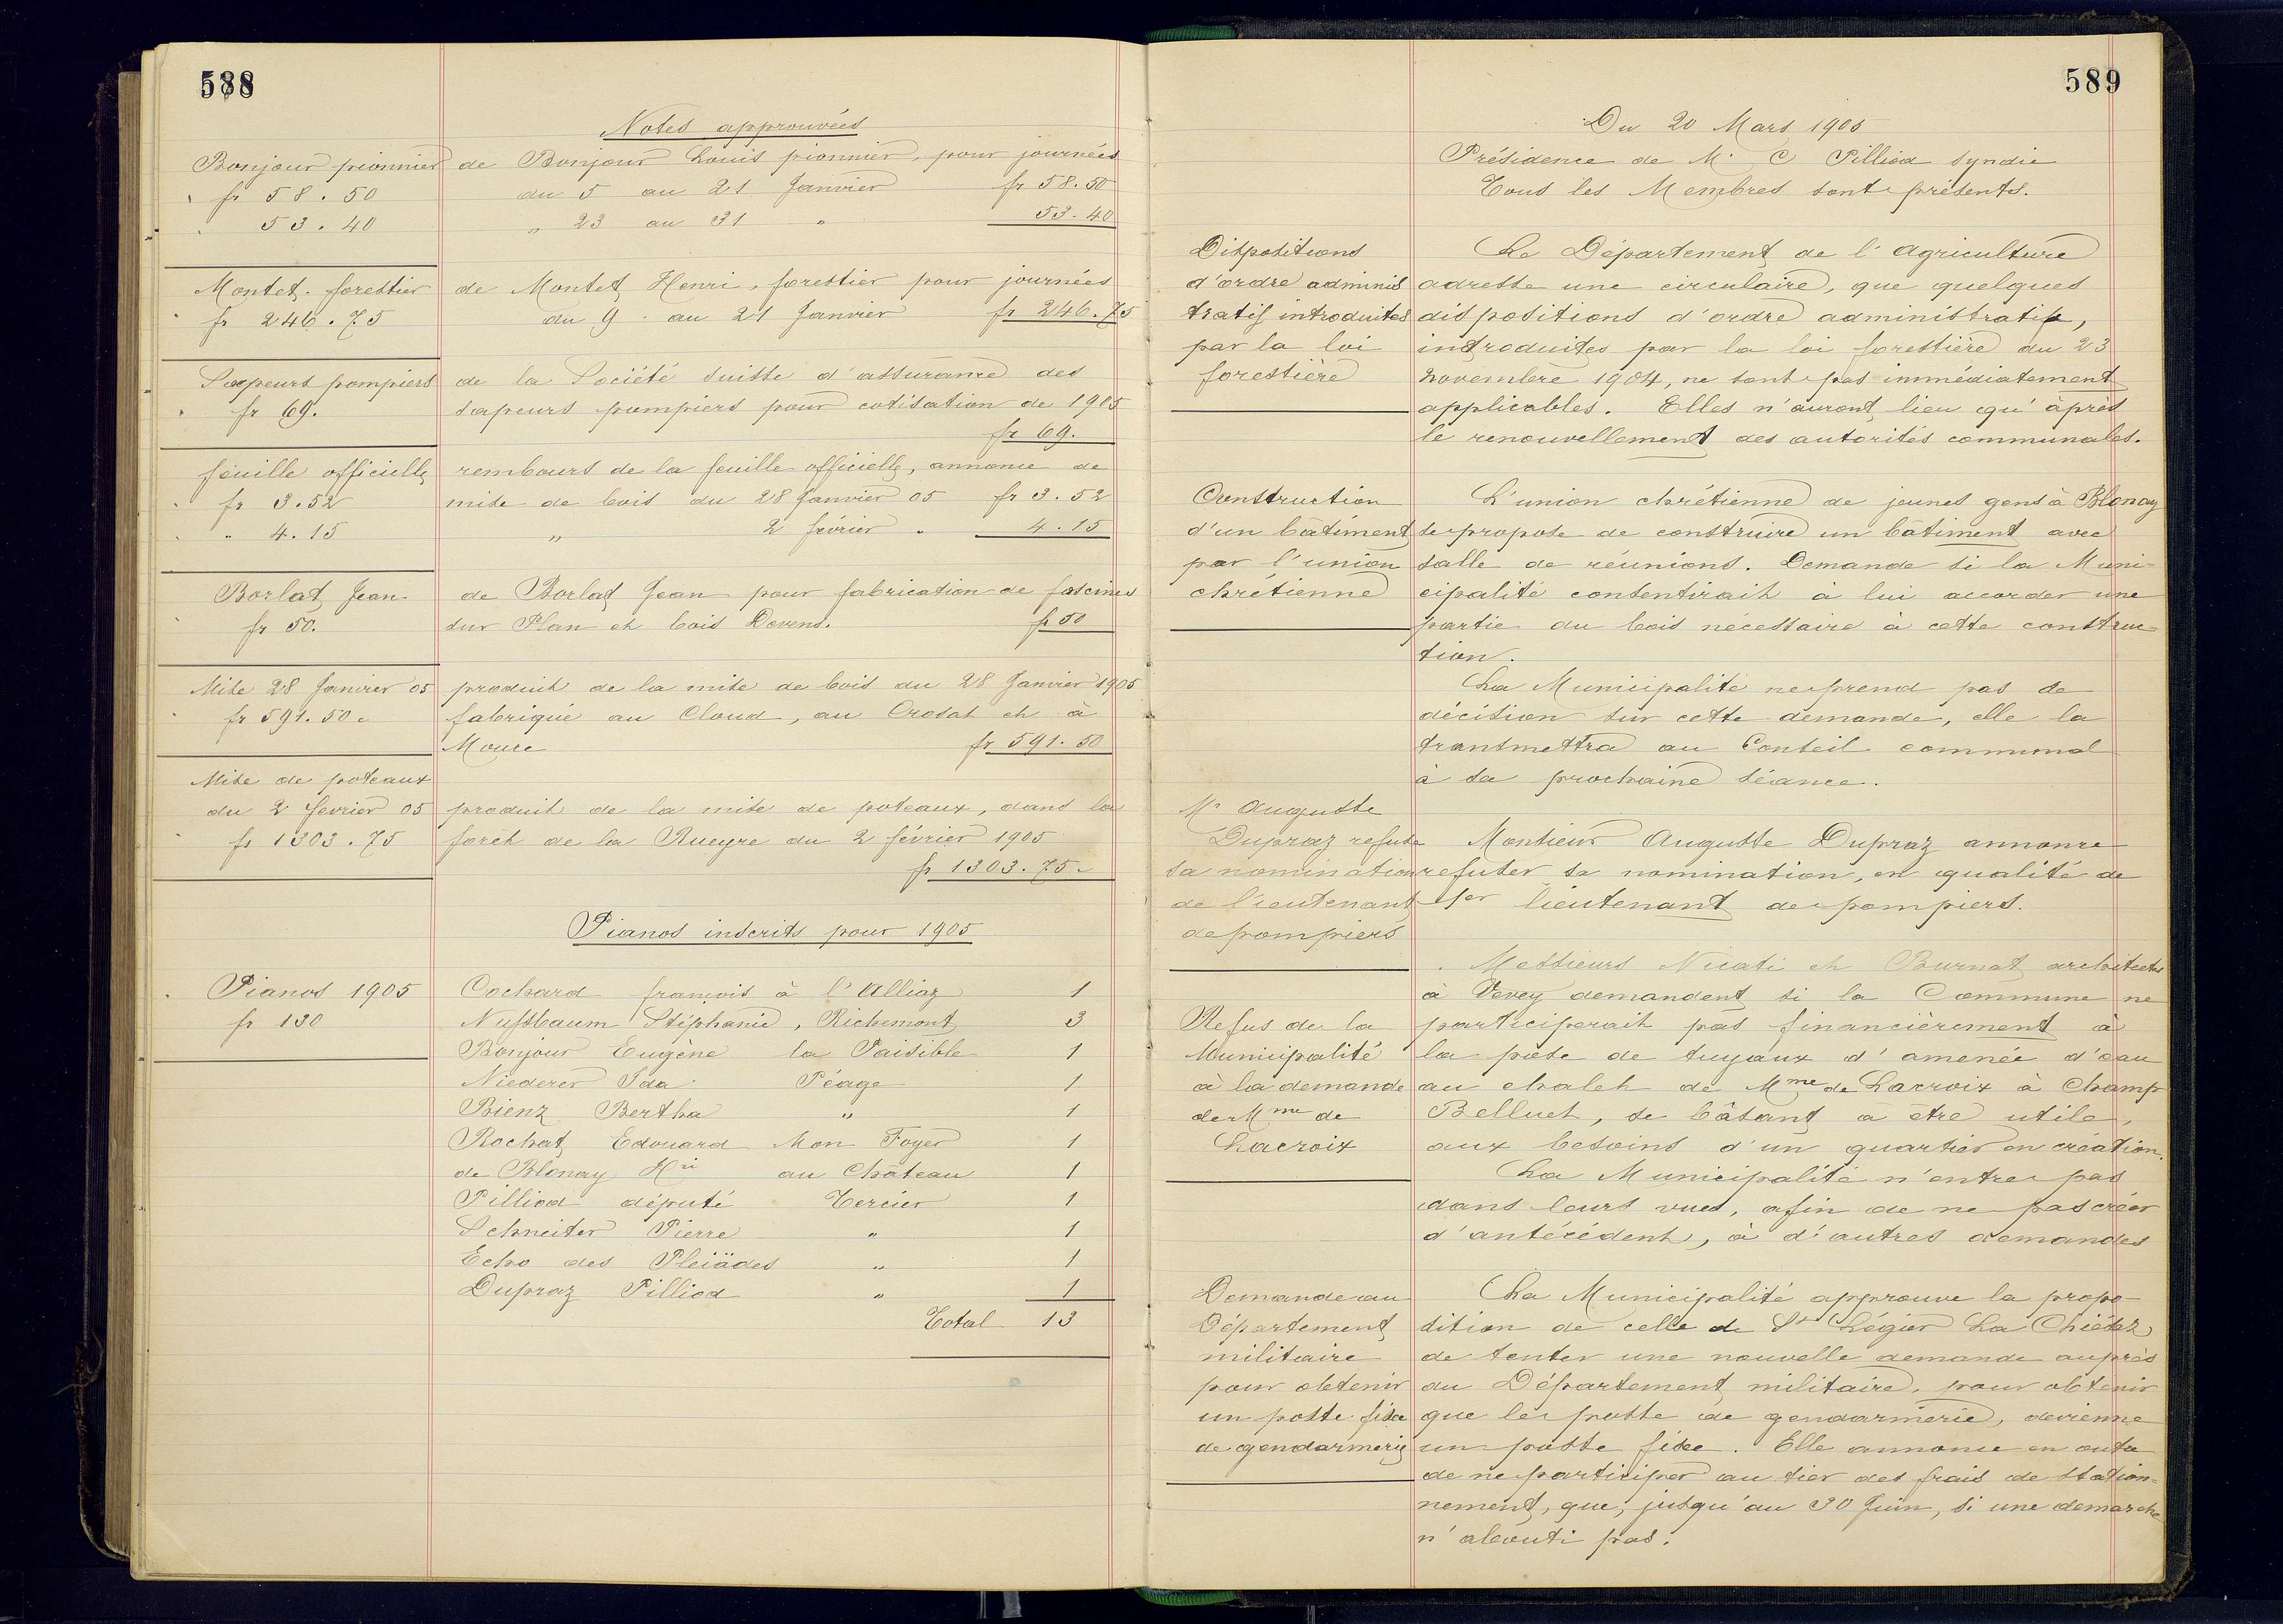 588
Notes approuvées
Bonjour pionnier
fr 58.50
53.40
de Bonjour Louis pionnier, pour journées
du 5 au 21 Janvier fr 58.50
" 23 au 31 " 53.40
Montet forestier
fr 246.75
de Montet Henri, forestier pour journées
du 9 au 21 Janvier fr 246.75
Sapeurs pompiers
fr 69.
de la Société suisse d'assurance des
sapeurs pompiers pour cotisation de 1905
fr 69.
feuille officielle
fr 3.52
" 4.15
rembours de la feuille officielle, annonce de
mise de bois du 28 Janvier 05 fr 3.52
" 2 février " 4.15
Borlat Jean
fr 50.
de Borlat Jean pour fabrication de fascines
sur Plan et bois Devens. fr 50
Mise 28 Janvier 05
fr 591.50
produit de la mise de bois du 28 Janvier 1905
fabriqué au Cloud, au Crosat et à
Moure fr 591.50
Mise de poteaux
du 2 fevrier 05
fr 1303.75
produit de la mise de poteaux, dans la
forêt de la Rueyre du 2 février 1905
fr 1303.75
Pianos inscrits pour 1905
Pianos 1905
fr 130
Cochard françois à l'Alliaz 1
Nussbaum Stéphanie, Richemont 3
Bonjour Eugène la Paisible 1
Niederer Ida Péage 1
Bienz Bertha " 1
Rochat Edouard Mon Foyer 1
de Blonay Hri au Château 1
Pilliod député Tercier 1
Schneiter Pierre " 1
Echo des Pleïades " 1
Dupraz Pilliod " 1
Total 13
589
Du 20 Mars 1905
Présidence de Mr C Pilliod syndic
Tous les Membres sont présents.
Dispositions
d'ordre adminis
tratif introduites
par la loi
forestière
Le Département de l'Agriculture
adresse une circulaire, que quelques
dispositions d'ordre administratif,
introduites par la loi forestière du 23
novembre 1904, ne sont pas immédiatement
applicables. Elles n'auront lieu qu'àprès
le renouvellement des autorités communales.
Construction
d'un bâtiment
par l'union
chrétienne
L'union chrétienne de jeunes gens à Blonay
se propose de construire un bâtiment avec
salle de réunions. Demande si la Muni-
cipalité consentirait à lui accorder une
partie du bois nécessaire à cette construc-
tion.
La Municipalité ne prend pas de
décision sur cette demande, elle la
transmettra au Conseil communal
à sa prochaine séance.
Mr Auguste
Dupraz refuse
sa nomination
de lieutenant
de pompiers
Monsieur Auguste Dupraz annonce
refuser sa nomination, en qualité de
1er lieutenant de pompiers.
Refus de la
Municipalité
à la demande
de Mme de
Lacroix
Messieurs Nicati et Burnat architectes
à Vevey demandent si la Commune ne
participerait pas financièrement à
la pose de tuyaux d'amenée d'eau
au chalet de Mme de Lacroix à Champ
Belluet, se bâsant à être utile,
aux besoins d'un quartier en création.
La Municipalité n'entre pas
dans leurs vues, afin de ne pas créer
d'antécédent, à d'autres demandes
Demande au
Département
militaire
pour obtenir
un poste fixe
de gendarmerie
La Municipalité approuve la propo-
sition de celle de St Légier La Chiésaz
de tenter une nouvelle demande auprès
du Département militaire, pour obtenir
que le poste de gendarmerie, devienne
un poste fixe. Elle annonce en outre
de ne participer au tier des frais de station-
nement, que, jusqu'au 30 Juin, si une demarche
n'abouti pas.